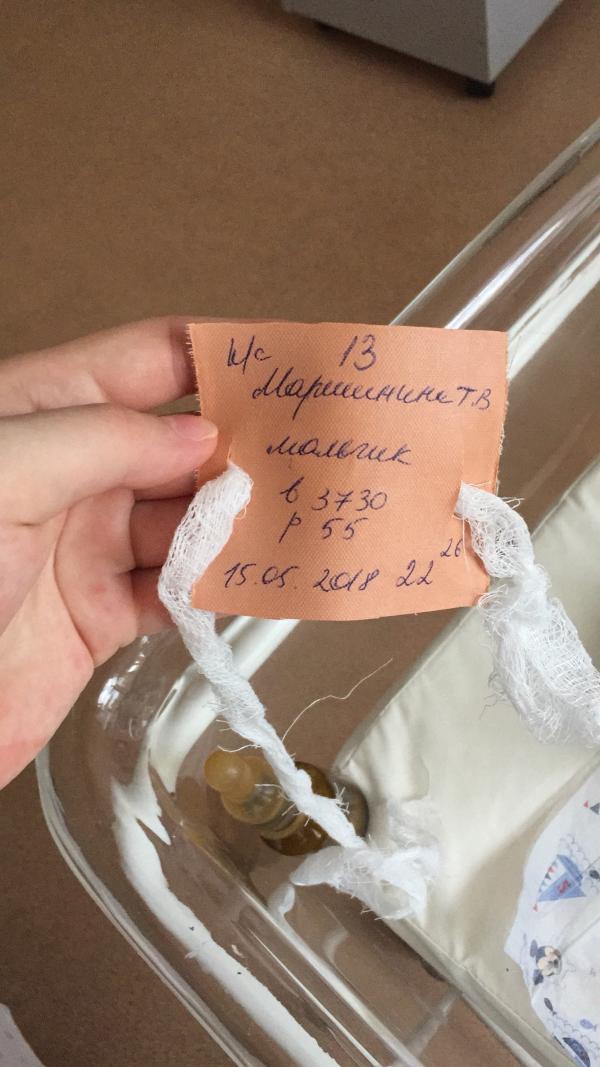 и/с 13
Маршинина Т.В
мальчик
в 3730
р 55
15.05. 2018 22 26